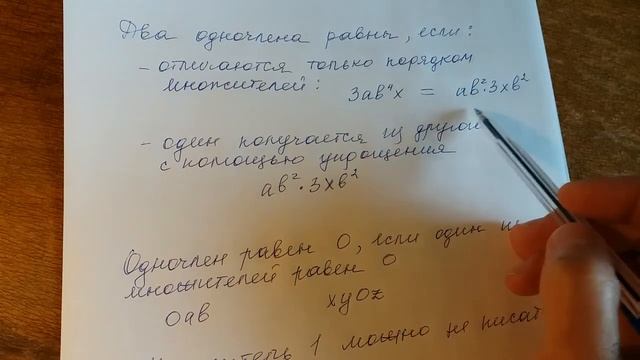 Два одночлена равны, если:
- отличаются только порядком
множителей: 3ab⁴x = ab²·3xb²
- один получается из другого
с помощью упрощения
ab²·3xb²
Одночлен равен 0, если один из
множителей равен 0
0ab xy0z
1 можно не писат